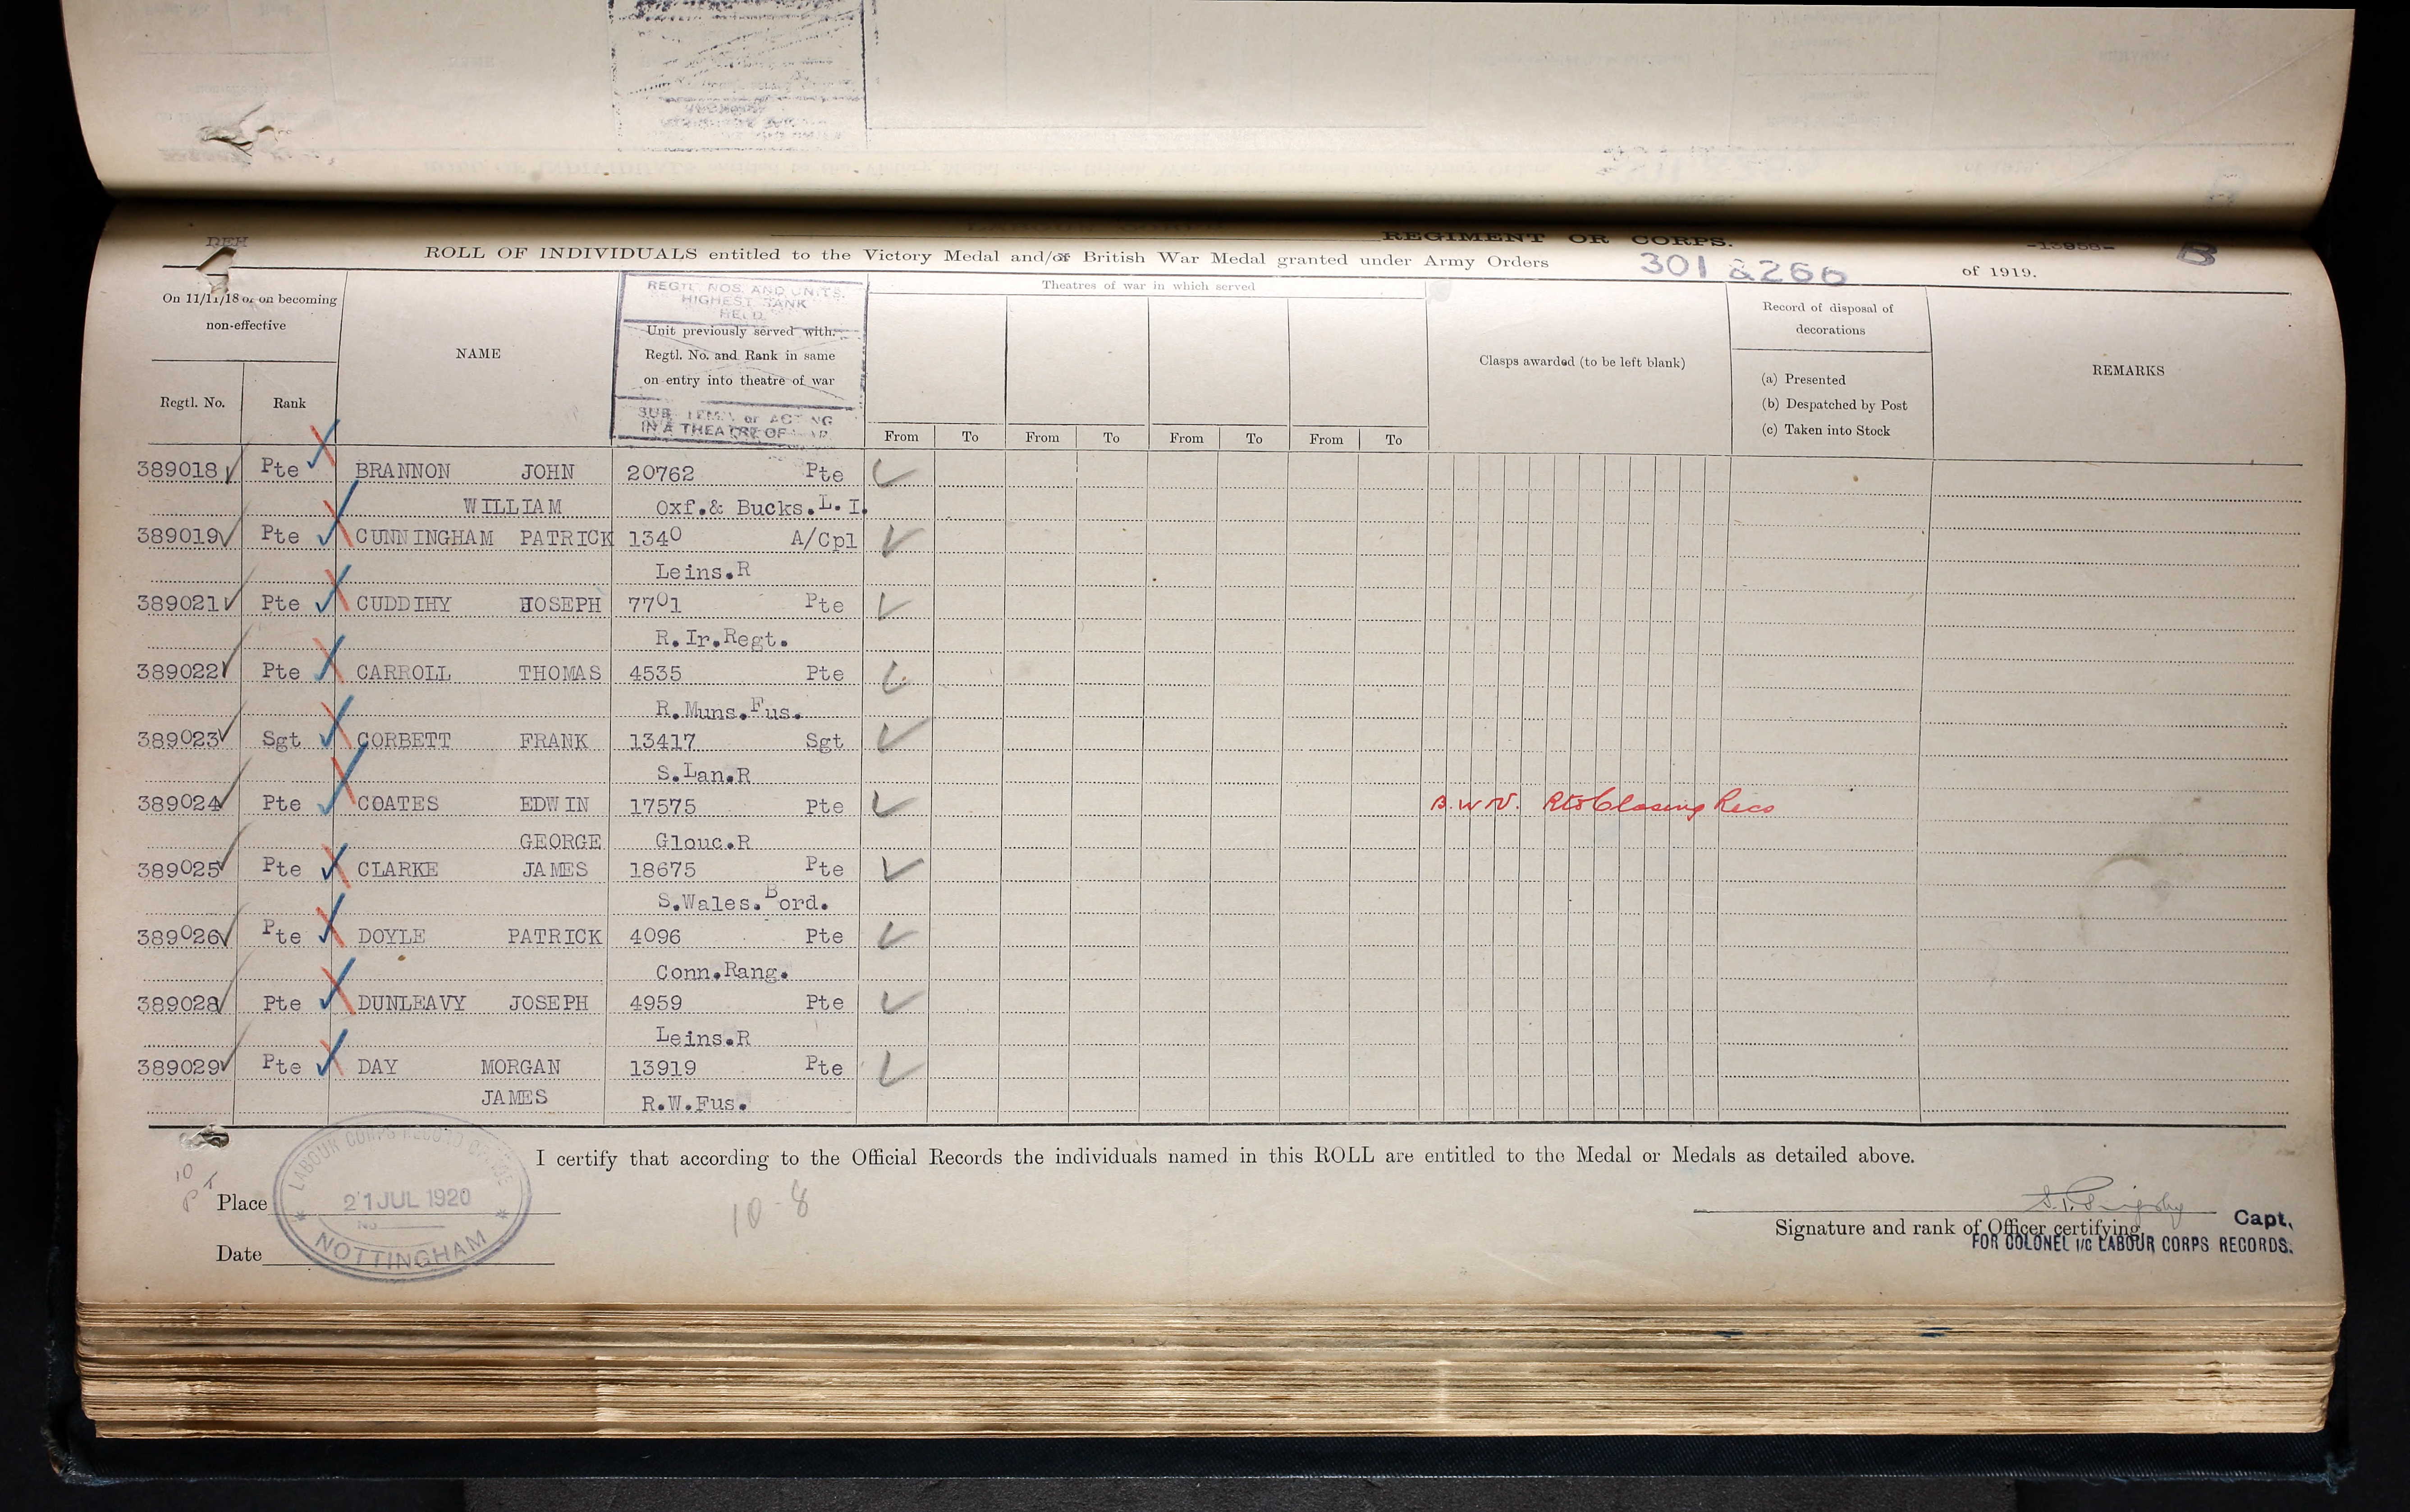 DEH
REGIMENT OR CORPS.
-13956-
B
ROLL OF INDIVIDUALS entitled to the Victory Medal and/or British War Medal granted under Army Orders 301 & 266 of 1919.
On 11/11/18 or on becoming
non-effective
Regtl. No.
Rank
NAME
REGTL NOS. AND UNITS.
HIGHEST RANK
HELD
Unit previously served with.
Regtl. No. and Rank in same
on entry into theatre of war
SUB. TEMP. or ACTING
IN A THEATRE OF WAR
Theatres of war in which served
From To From To From To From To
Clasps awarded (to be left blank)
Record of disposal of
decorations
(a) Presented
(b) Despatched by Post
(c) Taken into Stock
REMARKS
389018 Pte BRANNON JOHN 20762 Pte
WILLIAM Oxf.& Bucks.L.I.
389019 Pte CUNNINGHAM PATRICK 1340 A/Cpl
Leins.R
389021 Pte CUDDIHY JOSEPH 7701 Pte
R.Ir.Regt.
389022 Pte CARROLL THOMAS 4535 Pte
R.Muns.Fus.
389023 Sgt CORBETT FRANK 13417 Sgt
S.Lan.R
389024 Pte COATES EDWIN 17575 Pte B.W.V. Closing Recs
GEORGE Glouc.R
389025 Pte CLARKE JAMES 18675 Pte
S.Wales.Bord.
389026 Pte DOYLE PATRICK 4096 Pte
Conn.Rang.
389028 Pte DUNLEAVY JOSEPH 4959 Pte
Leins.R
389029 Pte DAY MORGAN 13919 Pte
JAMES R.W.Fus.
I certify that according to the Official Records the individuals named in this ROLL are entitled to the Medal or Medals as detailed above.
10
Place
Date
LABOUR CORPS RECORD OFFICE
21 JUL 1920
No
NOTTINGHAM
10-8
Capt.
Signature and rank of Officer certifying
FOR COLONEL I/C LABOUR CORPS RECORDS.